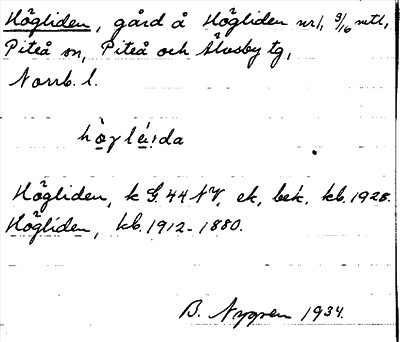 Högliden, gård å Högliden nr 1, 9/16 mtl,
Piteå sn, Piteå och Älvsby tg,
Norrb. l.
Högliden, k G. 44 NV, ek, bek. kb. 1928.
Högliden, kb. 1912-1880.
B. Nygren 1934.